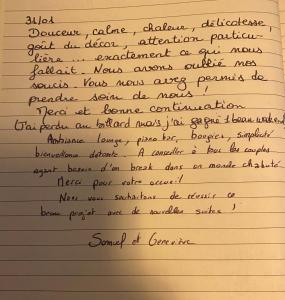 31/01
Douceur, calme, chaleur, délicatesse,
goût du décor, attention particu-
lière... exactement ce qui nous
fallait. Nous avons oublié nos
soucis. Vous nous avez permis de
prendre soin de nous !
Merci et bonne continuation
(J'ai perdu au billard mais j'ai gagné 1 beau weekend)
Ambiance lounge, piano bar, bougies, simplicité
bienveillance détente. A conseiller à tous les couples
ayant besoin d'un break dans un monde chahuté.
Merci pour votre accueil !
Nous vous souhaitons de réussir ce
beau projet avec de nouvelles suites !
Samuel et Geneviève